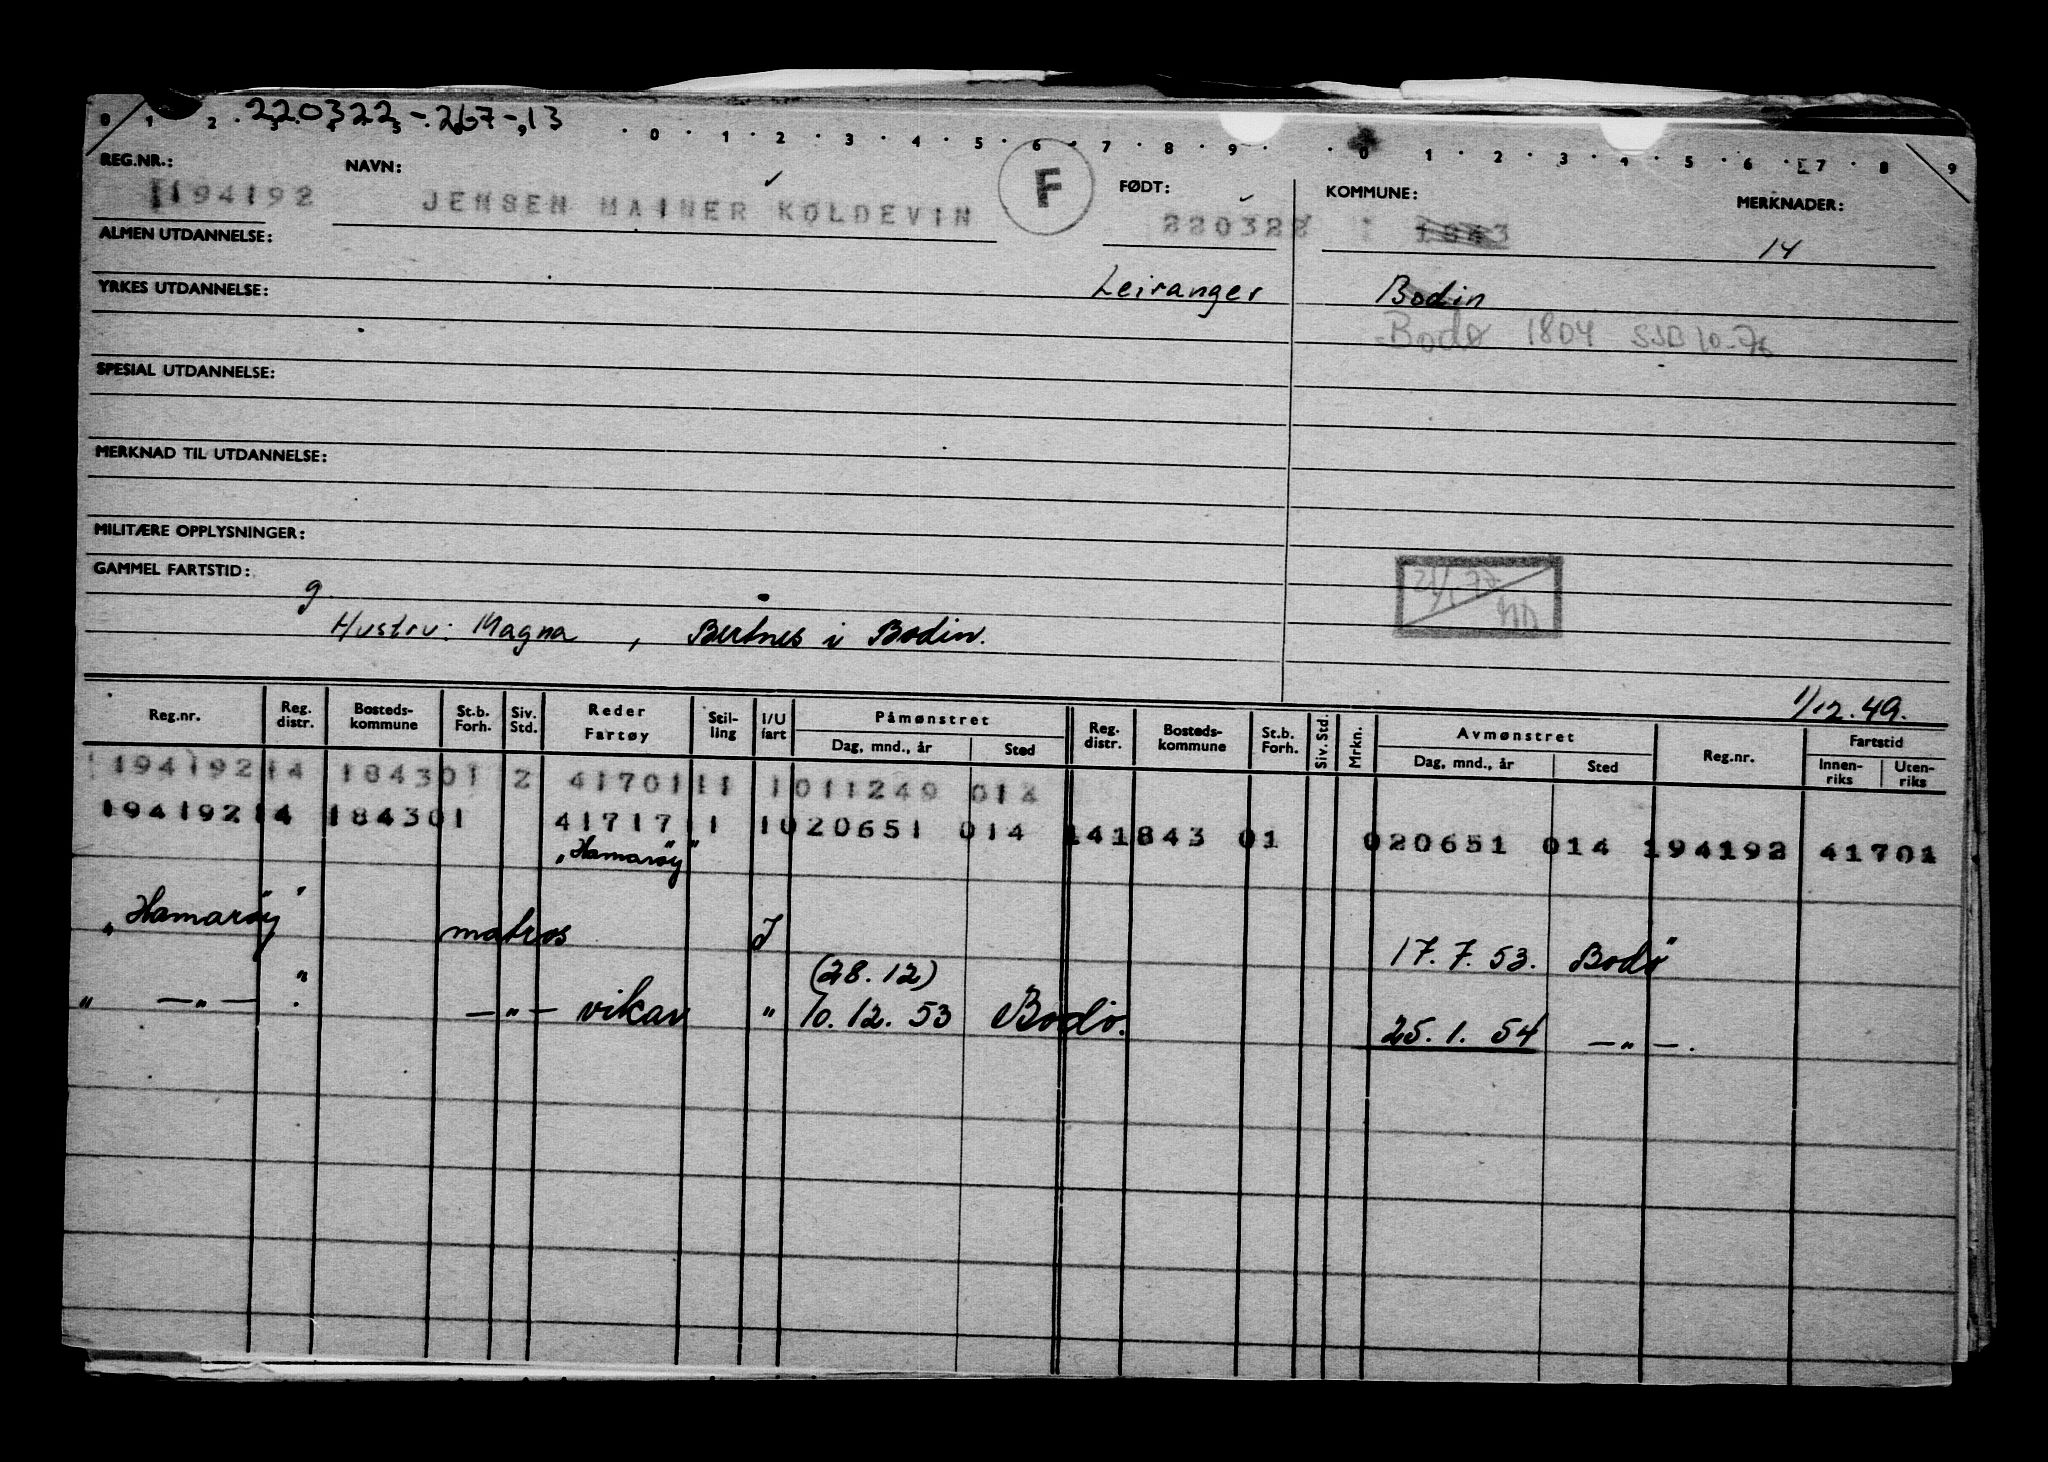 220322-.267-,13
0 1 2 3 4 5 0 1 2 3 4 5 6 7 8 9 0 1 2 3 4 5 6 7 8 9
REG.NR.: NAVN: F FØDT: KOMMUNE: MERKNADER:
194192 JENSEN MAINER KOLDEVIN 220322 14
ALMEN UTDANNELSE:
YRKES UTDANNELSE: Leiranger Bodin
Bodø 1804 SJØ 10-76
SPESIAL UTDANNELSE:
MERKNAD TIL UTDANNELSE:
MILITÆRE OPPLYSNINGER:
GAMMEL FARTSTID: g.
Hustru: Magna , Bertnes i Bodin.
1/12.49.
Reg.nr. Reg. distr. Bosteds-kommune St.b. Forh. Siv. Std. Reder Fartøy Stil-ling I/U fart Påmønstret Dag, mnd., år Sted Reg. distr. Bosteds-kommune St.b. Forh. Siv. Std. Mrkn. Avmønstret Dag, mnd., år Sted Reg.nr. Fartstid Innen-riks Uten-riks
194192 14 1843 01 2 41701 11 1 011249 014
194192 14 1843 01 41717 11 1 020651 014 14 1843 01 020651 014 194192 41701
"Hamarøy"
"Hamarøy" matros I 17.7.53. Bodø
(28.12)
" —"— " . —"— vikar " 10.12.53 Bodø. 25.1.54 —"—.